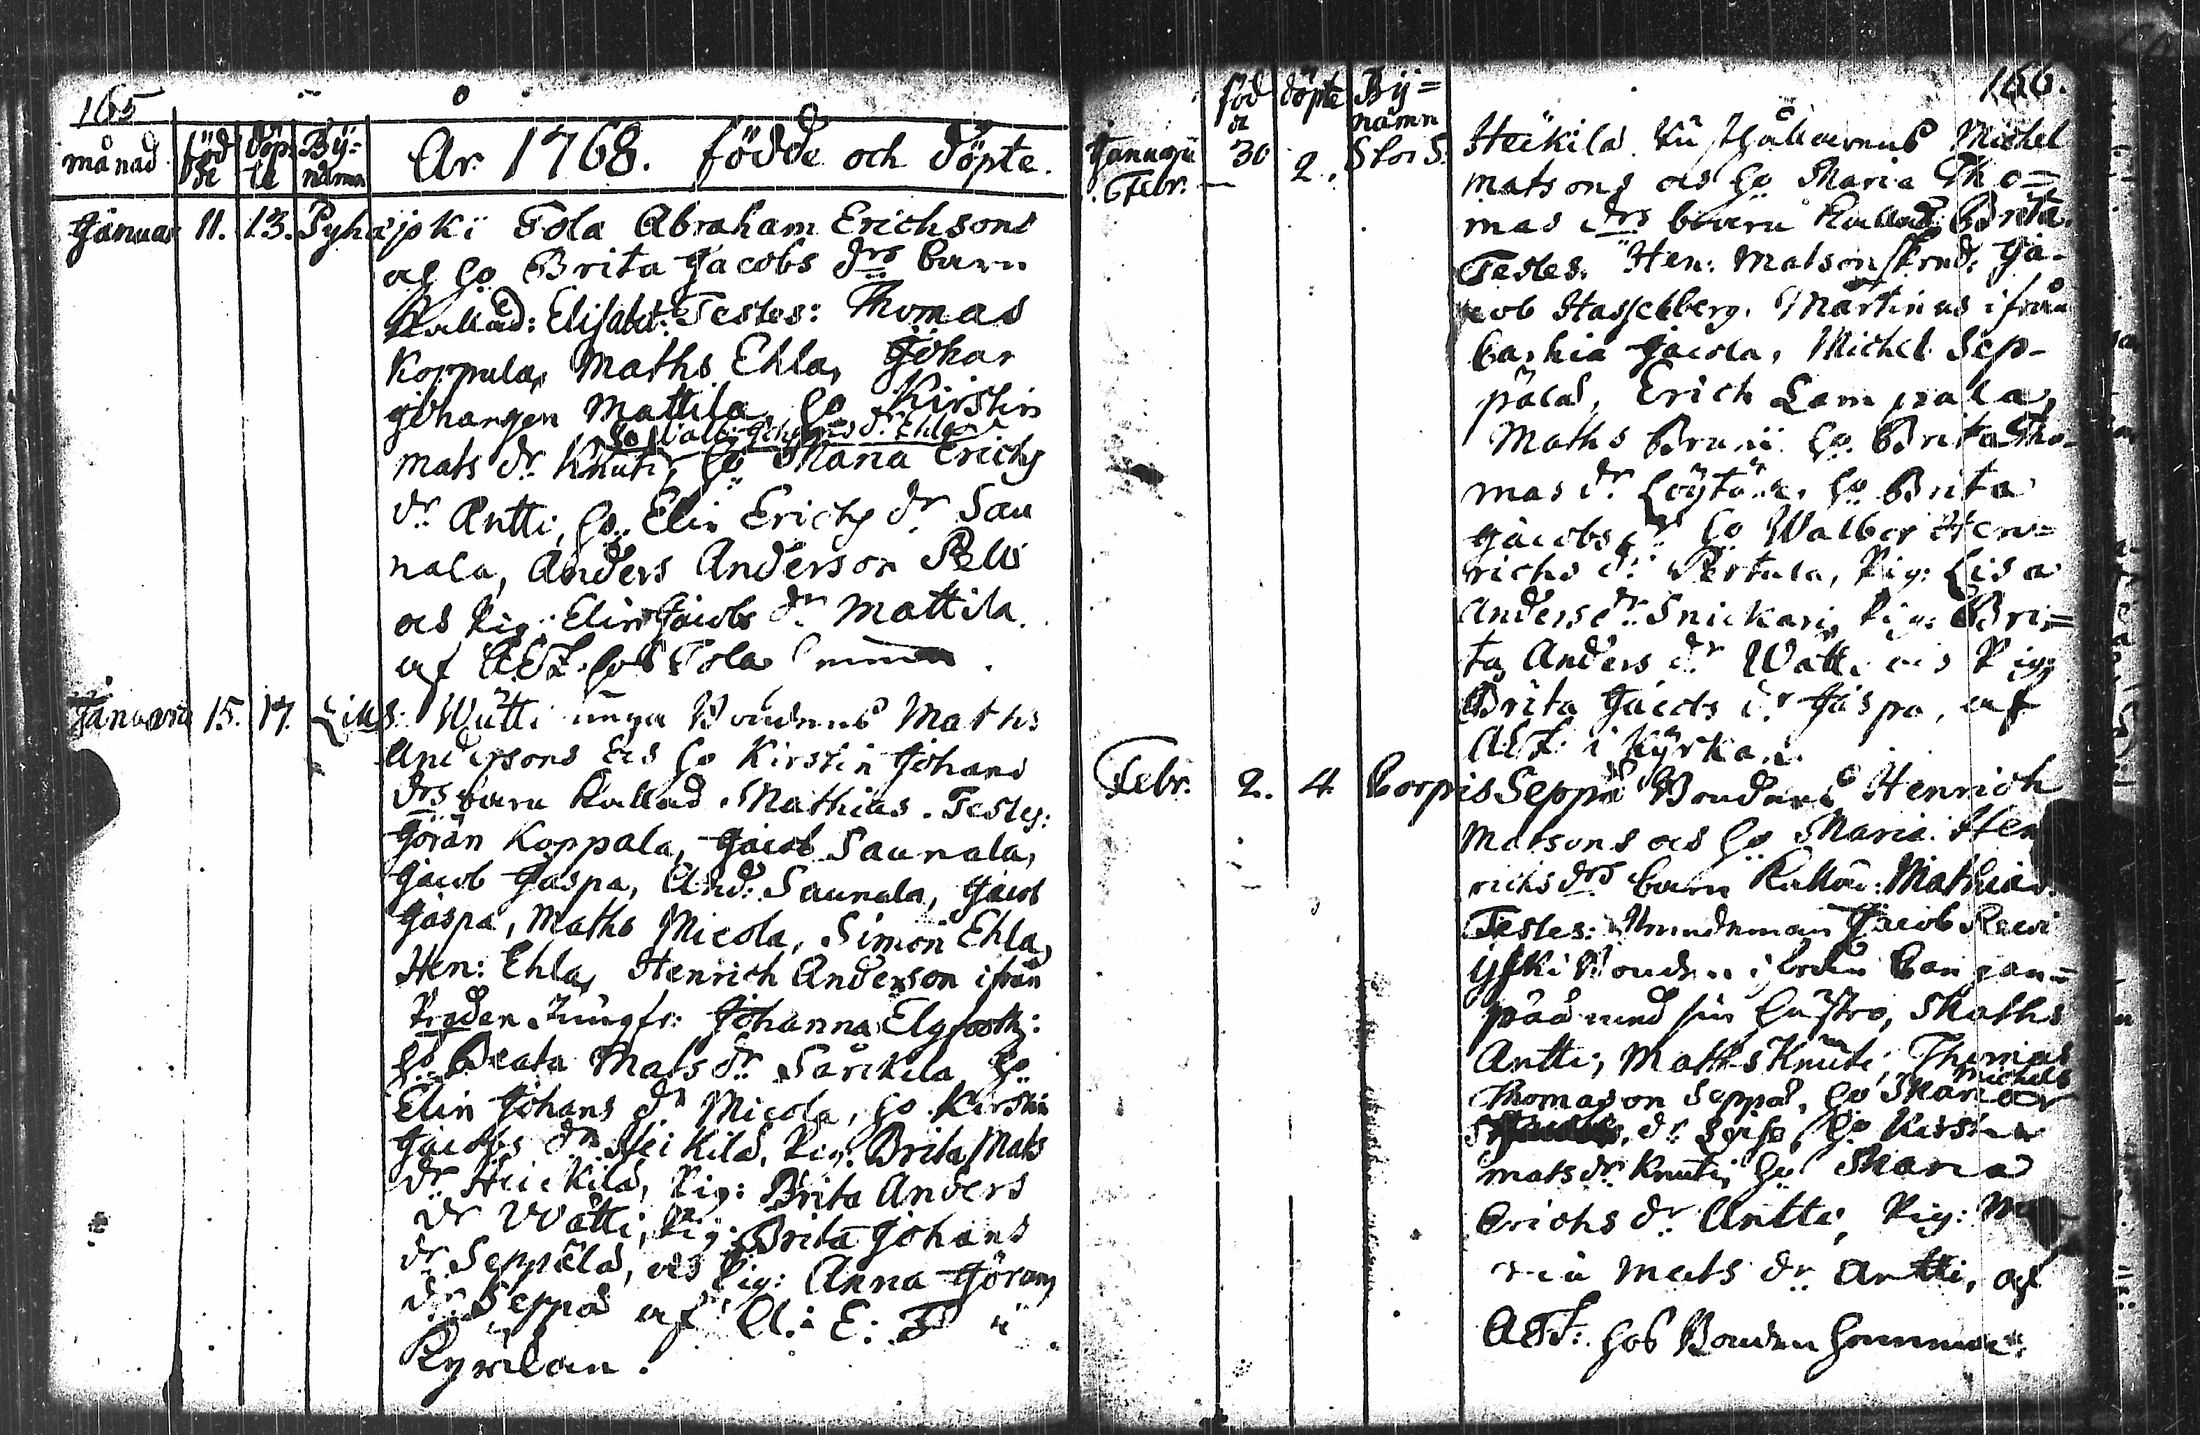 165
månad född de döp te Bÿ= namn År 1768. födde och döpte.
Januar 11. 13. Pyhäjoki Tola Abraham Erichsons
och ho Brita Jacobs drs barn
Kallad: Elisabet: Testes: Thomas
Koppula, Maths Ehla, Johan
Johansson Mattila, ho Kirstin
ho Walb: Johans dr Ehla
mats dr Knuti, ho Maria Erichs
dr Antti, ho Elin Erichs dr Sau
nala, Anders Anderson
och Pig: Elin Jacobs dr Mattila.
af AET. hos Tola hemma.
Januarii 15. 17. Lill S: Wätti unga Bondens Maths
Andersons och ho Kirstin Johans
drs barn Kallad Mathias. Testes:
Görän Koppala, Jacob Saunala,
Jacob Jaspa, And: Saunala, Jacob
Jaspa, Maths Micola, Simon Ehla,
Hen: Ehla, Henrich Anderson ifrån
Jungfr: Johanna
ho Beata Mats dr Särkilä ho
Elin Johans dr Micola, ho Kirstin
Jacobs dr Heikilä, Pig: Brita Mats
dr Heickilä, Pig: Brita Anders
dr Wätti, Pig: Brita Johans
dr Seppälä, och Pig: Anna Görans
dr Seppä af A: E: T i
Kyrkan.
166.
född a döpte Bÿ= namn
Januarii 30 Stor S. Heickilä Michel
Febr. — 2. matsons och ho Maria Tho=
mas drs barn Kallad Brita.
Testes. Hen: Matson Ja-
cob Hasselberg. Martinus ifrån
Jacola, Michel Sep-
pälä, Erich Lampala,
Maths Bruni ho Brita Tho-
mas dr Löÿtänä, ho Brita
Jacobs dr ho Walbor Hen=
richs dr Pertula, Pig: Lisa
Anders dr Snickari, Pig: Bri=
ta Anders dr Wätti och Pig:
Brita Jacobs dr Jaspa, af
AET: i Kyrkan.
Febr. 2. 4. Corpis Seppä Bondens Henrich
Matsons och ho Maria Hen
richs drs barn Kallad: Mathias.
Testes: Jacob
med sin hustro, Maths
Antti, Maths Knuti, Thomas
Thomason Seppä, ho Maria Michels
dr ho Kirstin
mats dr Knuti, ho Maria
Erichs dr Antti, Pig: Ma
ria Mats dr Antti, af
AET: hos Bonden hemma.